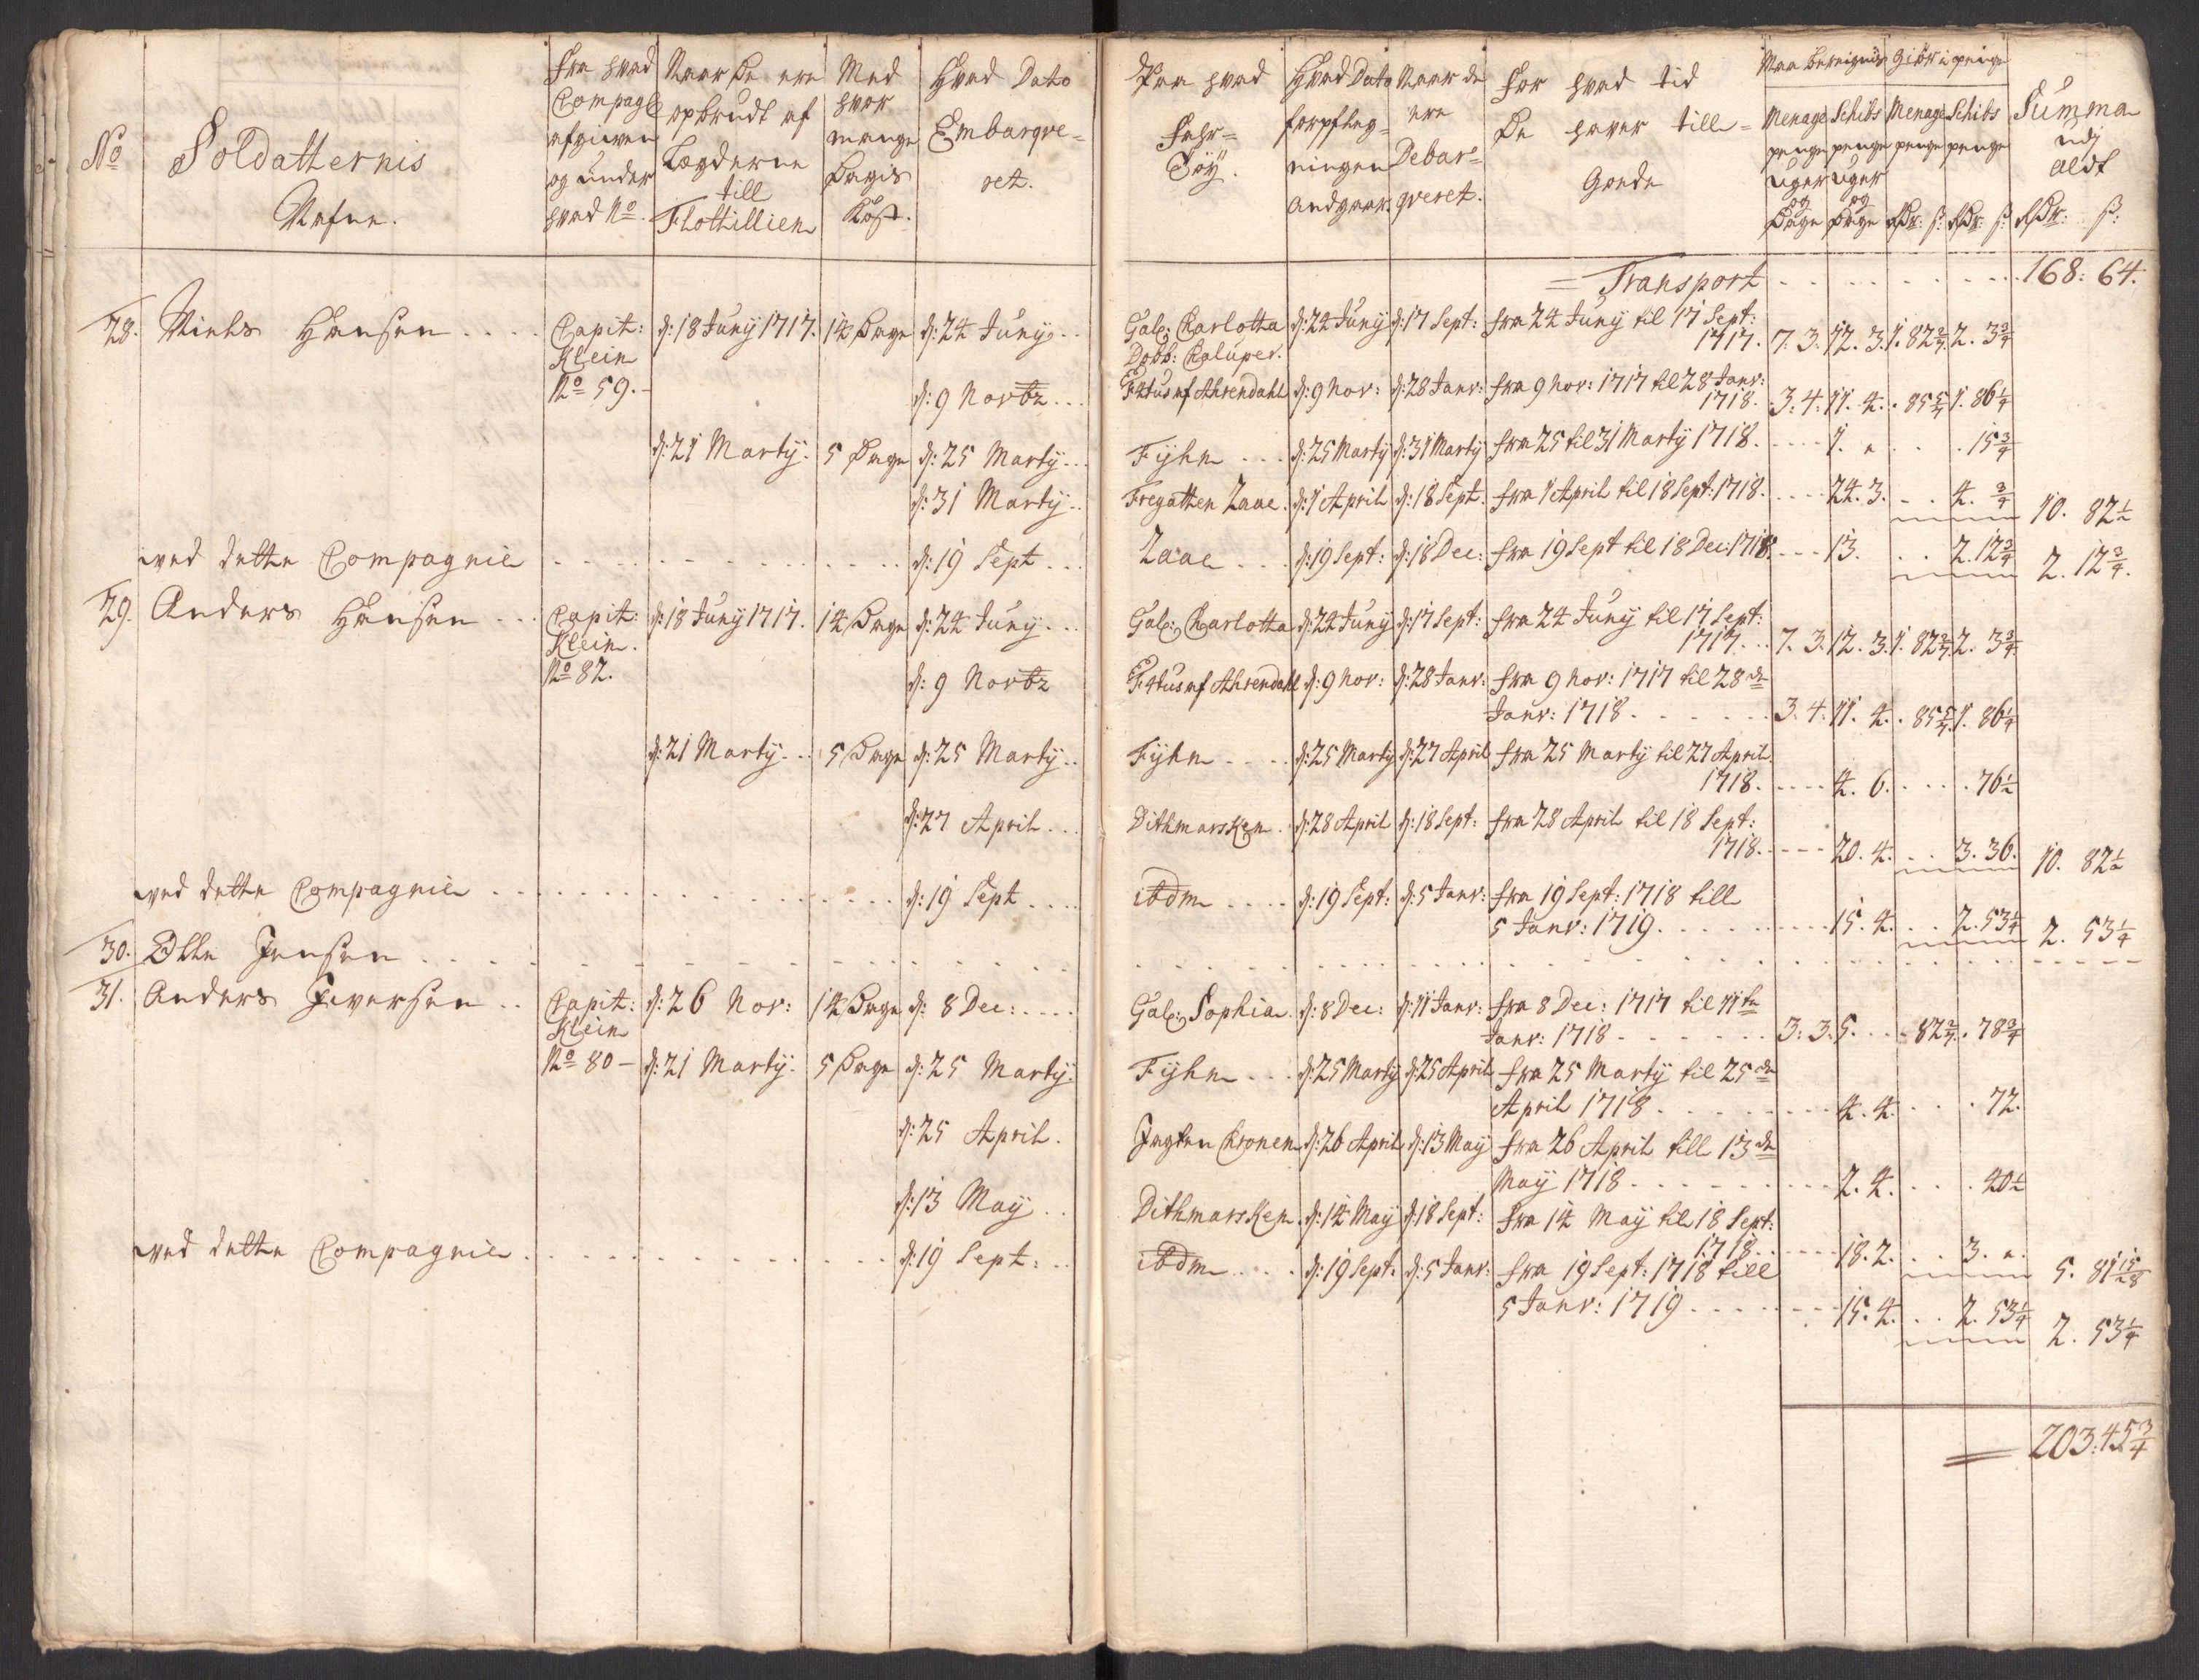 No
Soldatternis
Nafne.
Fra hvad
Compagl
afgiven
og under
hvad No.
Naar De ere
opbrudt af
Lægderne
till
Flottillien
Med
hvor
mange
Dages
Kost.
Hvad Dato
Embarqve-
ret.
Paa hvad
Fahr-
Töÿ.
Hvad Dato
forpfleg-
ningen
andgaar.
Naar de
ere
Debar-
qveret.
For hvad tid
De haver till-
Gode
Maa bereignes
Giör i penge
Menage
penge
uger
og
Dage
Schibs
penge
uger
og
Dage
Menage
penge
Rdr: ß:
Schibs
penge
Rdr: ß:
Summa
udj
aldt
Rdr: ß:
= Transport - - - 168: 64.
28. Niels Hansen . . . . Capit: d: 18 Junÿ 1717. 14 Dage d: 24 Junÿ . . Gal: Carlotta d: 24 Junÿ d: 17 Sept: fra 24 Junÿ til 17 Sept:
Klein Dobb: Chaluper. 1717. 7. 3. 12. 3. 1. 82 2/7. 2. 3 3/4
No 59. - d: 9 Novbr . . . Fortus af Ahrendahl d: 9 Nov: d: 28 Janv: fra 9 Nov: 1717 til 28 Janv:
1718. 3: 4: 11. 4. . 85 5/7 1. 86 1/4
d: 21 Martÿ. 5 Dage d: 25 Martÿ . . . Fÿhn . . . d: 25 Martÿ d: 31 Martÿ fra 25 til 31 Martÿ 1718. - - - - 1. „ . . . 15 3/4
d: 31 Martÿ . . Fregatten Zaae. d: 1 April d: 18 Sept. fra 1 April til 18 Sept: 1718. - - - - 24. 3. - . 4. 3/4 10. 82 1/2
ved dette Compagnie . . . d: 19 Sept . . . Zaae . . . d: 19 Sept: d: 18 Dec: fra 19 Sept til 18 Dec: 1718. - - - 13. . . 2. 12 3/4 2. 12 3/4.
29. Anders Hansen . . . Capit: d: 18 Junÿ 1717. 14 Dage d: 24 Junÿ . . . Gal: Carlotta d: 24 Junÿ d: 17 Sept: fra 24 Junÿ til 17 Sept:
Klein. 1717 . . . 7. 3. 12. 3. 1. 82 2/7. 2. 3 3/4
No 82. d: 9 Novbr Fortus af Ahrendahl d: 9 Nov: d: 28 Janv: fra 9 Nov: 1717 til 28 de
Janv: 1718 . . . 3. 4: 11. 4. . 85 5/7 1. 86 1/4
d: 21 Martÿ . . . 5 Dage d: 25 Martÿ . . Fÿhn . . . . d: 25 Martÿ d: 27 April fra 25 Martÿ til 27 April
1718. - - - - 4. 6. . . . . 76 1/2
d: 27 April . . . Dithmarsken . d: 28 April d: 18 Sept: fra 28 April til 18 Sept:
1718. - - - - 20. 4. . . 3. 36. 10. 82 1/2
ved dette Compagnie . . . d: 19 Sept . . . . ibdm . . . . d: 19 Sept: d: 5 Janv: fra 19 Sept: 1718 till
5 Janv: 1719 . . . 15. 4. . . 2. 53 1/4 2. 53 1/4
30. Olle Jensen . . .
31. Anders Iversen . . Capit: d: 26 Nov: 14 Dage d: 8 Dec: . . . . Gal: Sophia. d: 8 Dec: d: 11 Janv: fra 8 Dec: 1717 til 11 te
Klein Janv: 1718 . . . 3: 3. 5. . . . 82 2/7. . 78 3/4
No 80 - d: 21 Martÿ. 5 Dage d: 25 Martÿ. Fÿhn . . . d: 25 Martÿ d: 25 April fra 25 Martÿ til 25 de
April 1718 . . . 4. 4. . . . 72.
d: 25 April. Jagten Cronen d: 26 April d: 13 Maÿ fra 26 April till 13 de
Maÿ 1718 . . . 2. 4. . . . 40 1/2
d: 13 Maÿ . . Dithmarsken. d: 14 Maÿ d: 18 Sept: fra 14 Maÿ til 18 Sept:
1718 . . . 18. 2. . . 3. „. 5. 81 15/28
ved dette Compagnie . . . d: 19 Sept: . . ibdm . . . . d: 19 Sept: d: 5 Janv: fra 19 Sept: 1718 till
5 Janv: 1719 . . . 15. 4. . . 2. 53 1/4 2. 53 1/4
= 203: 45 3/4